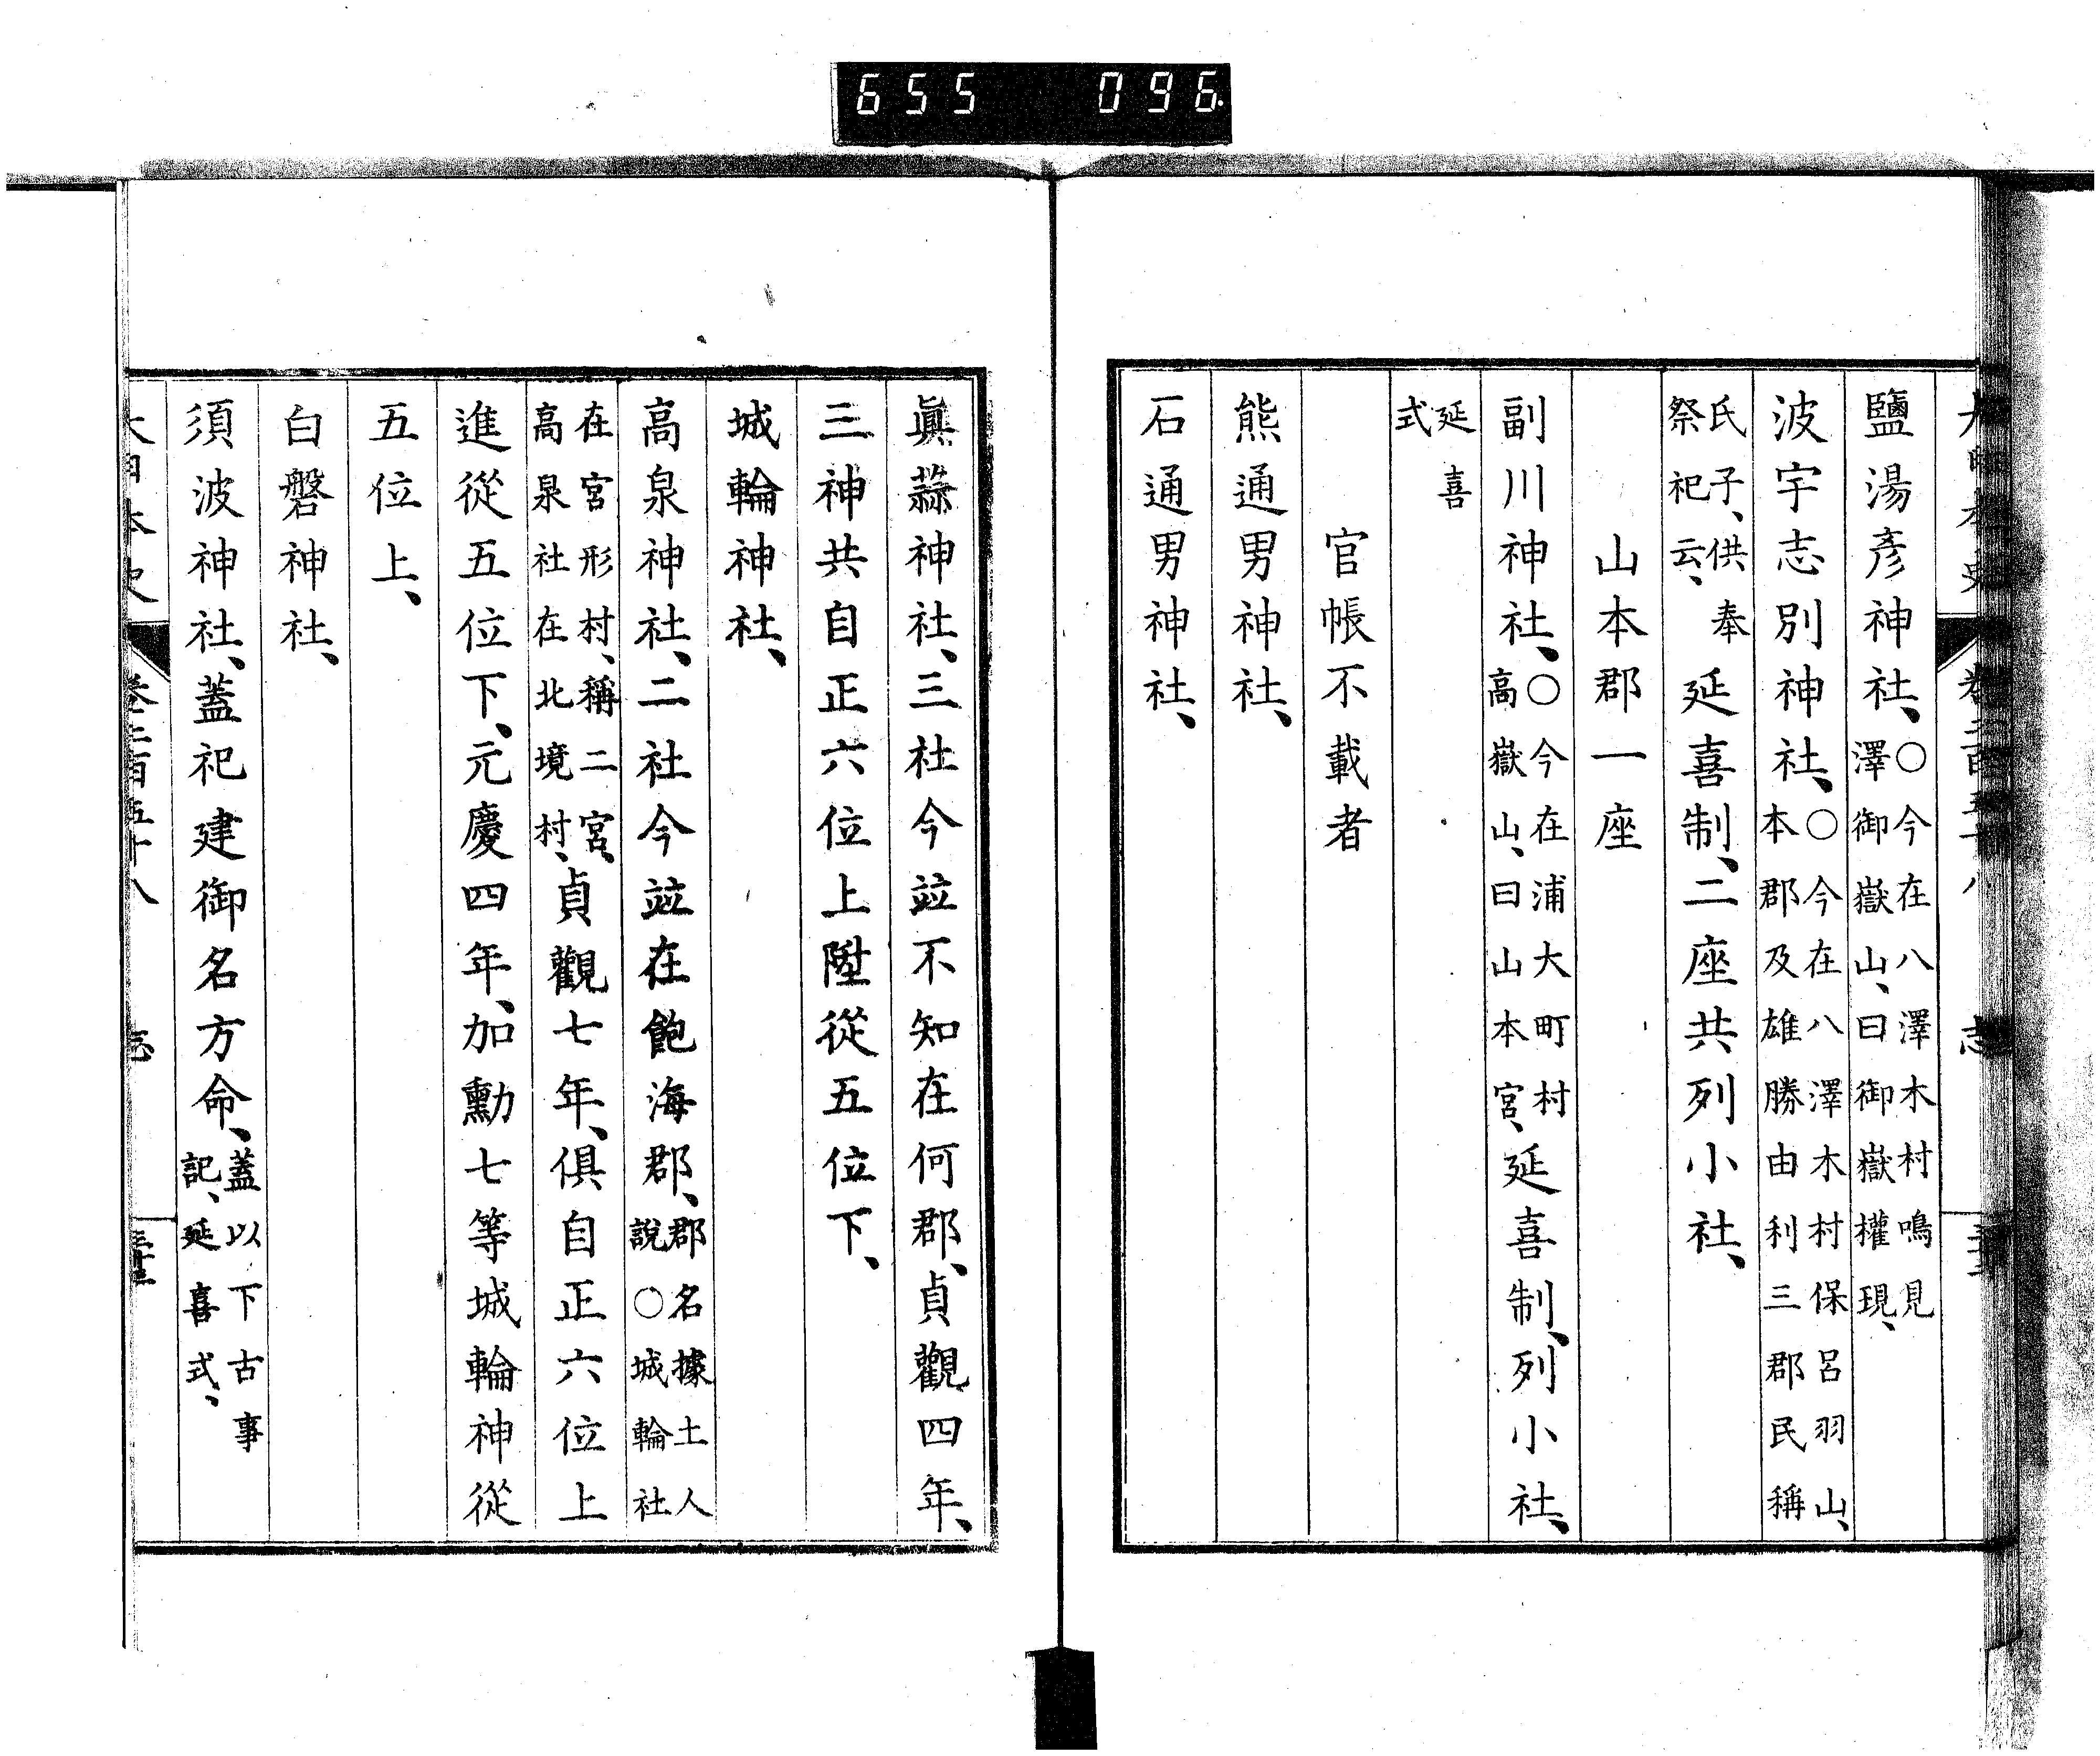 655 096
鹽湯彦神社、○今在八澤木村鳴見澤御嶽山、曰御嶽權現、
波宇志別神社、○今在八澤木村保呂羽山、本郡及雄勝由利三郡民稱
氏子、供奉祭祀云、延喜制、二座共列小社、
山本郡一座
副川神社、○今在浦大町村高嶽山、曰山本宮、延喜制、列小社、
延喜式
官帳不載者
熊通男神社、
石通男神社、
眞蒜神社、三社今竝不知在何郡、貞觀四年、
三神共自正六位上陞從五位下、
城輪神社、
高泉神社、二社今竝在飽海郡、郡名據土人說○城輪社
在宮形村、稱二宮、高泉社在北境村、貞觀七年、俱自正六位上
進從五位下、元慶四年、加勳七等城輪神從
五位上、
白磐神社、
須波神社、蓋祀建御名方命、蓋以下古事記、延喜式、
大日本史 卷三百五十八 志